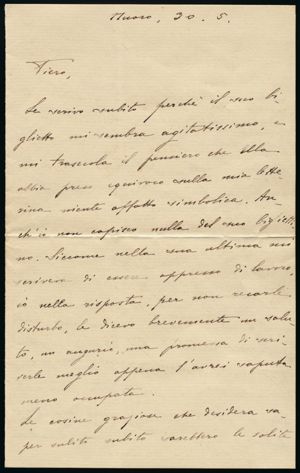 Nuoro, 30. 5.
Fiero,
Le scrivo subito perchè il suo bi-
glietto mi sembra agitatissimo, e
mi trascola il pensiero che ella
abbia preso equivoco sulla mia lette-
rina niente affatto simbolica. An-
ch'io non capisco nulla del suo biglietti-
no. Siccome nella sua ultima mi
scriveva di essere oppresso di lavoro,
io nella risposta, per non recarle
disturbo, le dicevo brevemente un salu-
to, un augurio, una promessa di scri-
verle meglio appena l'avrei saputa
meno occupata.
Le cosine graziose che desidera sa-
per subito subito sarebbero le solite